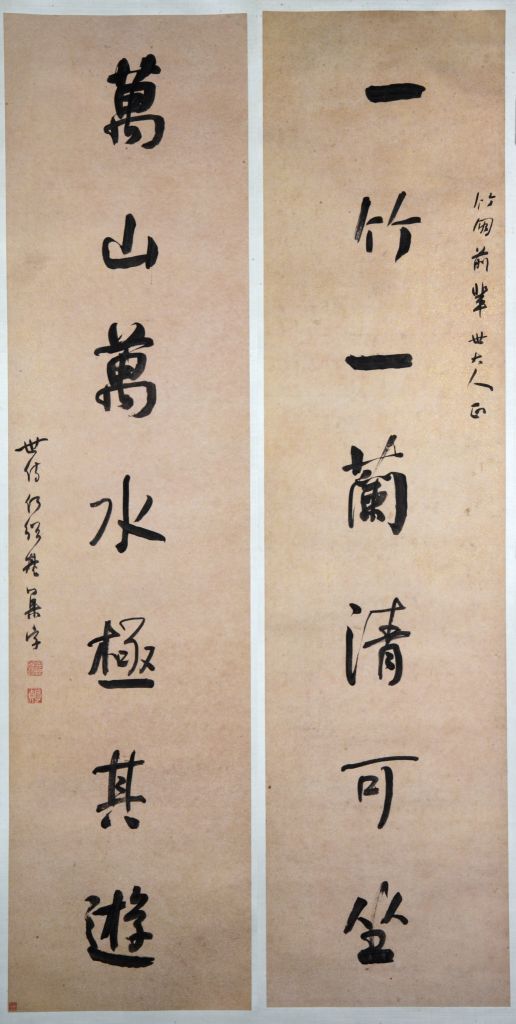 竹前輩世大人正
一竹一蘭清可坐
萬山萬水極其遊
世侍何紹基集字